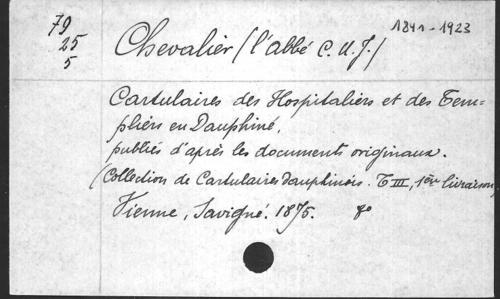 79
25
5
Chevalier (l'abbé C. U. J.)
1841-1923
Cartulaires des Hospitaliers et des Tem=
pliers en Dauphiné,
publiés d'après les documents originaux.
(Collection de Cartulaires dauphinois. T III, 1ère livraison)
Vienne, Savigné. 1875. 8º